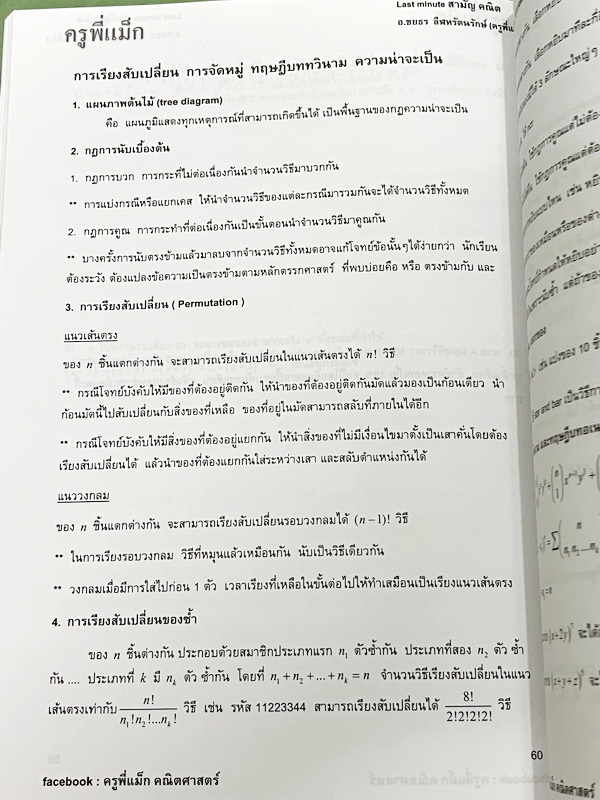 Last minute สามัญ คณิต
ครูพี่แม็ก
อ.ชยธร ลีฬหรัตนรักษ์ (ครูพี่แ
การเรียงสับเปลี่ยน การจัดหมู่ ทฤษฎีบททวินาม ความน่าจะเป็น
1. แผนภาพต้นไม้ (tree diagram)
คือ แผนภูมิแสดงทุกเหตุการณ์ที่สามารถเกิดขึ้นได้ เป็นพื้นฐานของกฎความน่าจะเป็น
2. กฎการนับเบื้องต้น
1. กฎการบวก การกระที่ไม่ต่อเนื่องกันนำจำนวนวิธีมาบวกกัน
** การแบ่งกรณีหรือแยกเคส ให้นำจำนวนวิธีของแต่ละกรณีมารวมกันจะได้จำนวนวิธีทั้งหมด
2. กฎการคูณ การกระทำที่ต่อเนื่องกันเป็นขั้นตอนนำจำนวนวิธีมาคูณกัน
** บางครั้งการนับตรงข้ามแล้วมาลบจากจำนวนวิธีทั้งหมดอาจแก้โจทย์ข้อนั้นๆได้ง่ายกว่า นักเรียน
ต้องระวัง ต้องแปลงข้อความเป็นตรงข้ามตามหลักตรรกศาสตร์ ที่พบบ่อยคือ หรือ ตรงข้ามกับ และ
3. การเรียงสับเปลี่ยน ( Permutation )
แนวเส้นตรง
ของ n ชิ้นแตกต่างกัน จะสามารถเรียงสับเปลี่ยนในแนวเส้นตรงได้ n! วิธี
** กรณีโจทย์บังคับให้มีของที่ต้องอยู่ติดกัน ให้นำของที่ต้องอยู่ติดกันมัดแล้วมองเป็นก้อนเดียว นำ
ก้อนมัดนี้ไปสับเปลี่ยนกับสิ่งของที่เหลือ ของที่อยู่ในมัดสามารถสลับที่ภายในได้อีก
** กรณีโจทย์บังคับให้มีสิ่งของที่ต้องอยู่แยกกัน ให้นำสิ่งของที่ไม่มีเงื่อนไขมาตั้งเป็นเสาคั่นโดยต้อง
เรียงสับเปลี่ยนได้ แล้วนำของที่ต้องแยกกันใส่ระหว่างเสา และสลับตำแหน่งกันได้
แนววงกลม
ของ n ชิ้นแตกต่างกัน จะสามารถเรียงสับเปลี่ยนรอบวงกลมได้ (n−1)! วิธี
** ในการเรียงรอบวงกลม วิธีที่หมุนแล้วเหมือนกัน นับเป็นวิธีเดียวกัน
** วงกลมเมื่อมีการใส่ไปก่อน 1 ตัว เวลาเรียงที่เหลือในขั้นต่อไปให้ทำเสมือนเป็นเรียงแนวเส้นตรง
4. การเรียงสับเปลี่ยนของซ้ำ
ของ n ชิ้นต่างกัน ประกอบด้วยสมาชิกประเภทแรก n₁ ตัวซ้ำกัน ประเภทที่สอง n₂ ตัว ซ้ำ
กัน .... ประเภทที่ k มี nₖ ตัว ซ้ำกัน โดยที่ n₁ + n₂ + ... + nₖ = n จำนวนวิธีเรียงสับเปลี่ยนในแนว
เส้นตรงเท่ากับ n!/(n₁!n₂!...nₖ!) วิธี เช่น รหัส 11223344 สามารถเรียงสับเปลี่ยนได้ 8!/(2!2!2!2!) วิธี
60
facebook : ครูพี่แม็ก คณิตศาสตร์